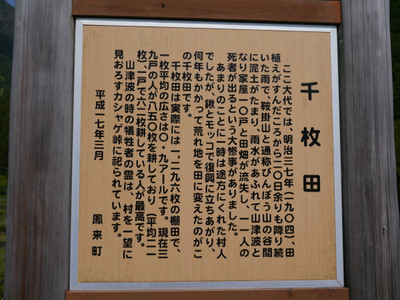 千枚田
ここ大代では、明治三七年(一九〇四)、田
植えがすんだころから二〇日余りも降り続
いた雨で、鞍掛山と通称びんぼう山の谷間
に泥土がたまり、雨水があふれて山津波と
なり家屋一〇戸と田畑が流失し、一一人の
死者が出るという大惨事がありました。
あまりのことに一時は途方にくれた村人
でしたが、鍬とモッコで復興に立ちあがり、
何年もかかって荒れ地を田に変えたのがこ
の千枚田です。
千枚田は実際には一、二九六枚の棚田で、
一枚平均の広さは〇・九アールです。現在三
九戸の人が八五〇枚を耕しており(平均二一
枚)、一戸で六二枚耕している人が最高です。
山津波の時の犠牲者の霊は、村を一望に
見おろすカシャゲ峠に祀られています。
平成一七年三月
鳳来町